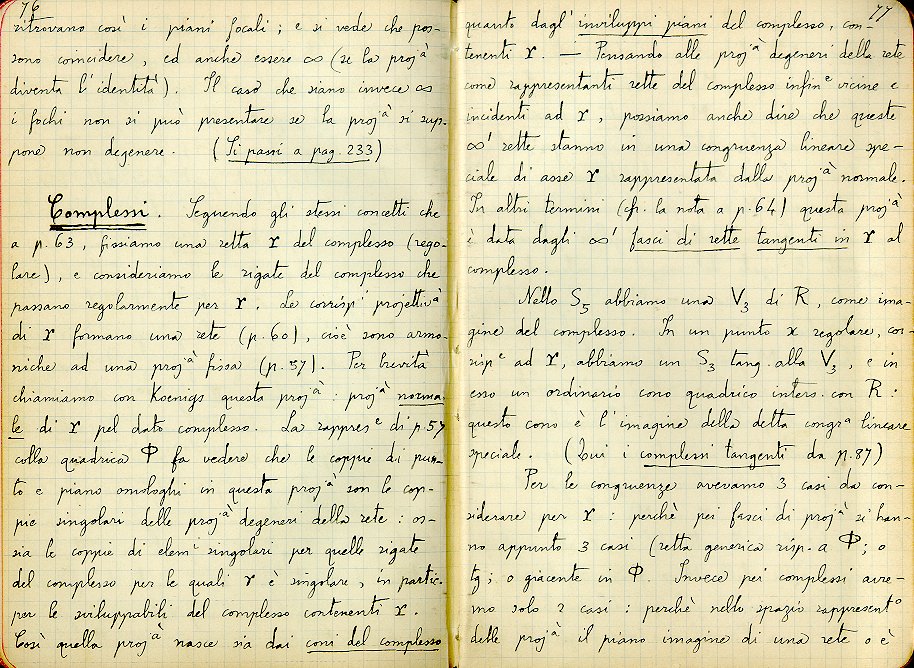 76
ritrovano così i piani focali; e si vede che pos-
sono coincidere, ed anche essere ∞ (se la projà
diventa l'identità). Il caso che siano invece ∞
i fochi non si può presentare se la projà si sup-
pone non degenere. (Si passi a pag. 233)
Complessi. Seguendo gli stessi concetti che
a p. 63, fissiamo una retta r del complesso (rego-
lare), e consideriamo le rigate del complesso che
passano regolarmente per r. Le corrispi projettivà
di r formano una rete (p. 60), cioè sono armo-
niche ad una projà fissa (p. 57). Per brevità
chiamiamo con Koenigs questa projà: projà norma-
le di r pel dato complesso. La rapprese di p. 57
colla quadrica Φ fa vedere che le coppie di pun-
to e piano omologhi in questa projà son le cop-
pie singolari delle projà degeneri della rete: os-
sia le coppie di elemi singolari per quelle rigate
del complesso per le quali r è singolare, in partic.
per le sviluppabili del complesso contenenti r.
Così quella projà nasce sia dai coni del complesso
77
quanto dagl' inviluppi piani del complesso, con-
tenenti r. — Pensando alle projà degeneri della rete
come rappresentanti rette del complesso infine vicine e
incidenti ad r, possiamo anche dire che queste
∞¹ rette stanno in una congruenza lineare spe-
ciale di asse r rappresentata dalla projà normale.
In altri termini (cfr. la nota a p. 64) questa projà
è data dagli ∞¹ fasci di rette tangenti in r al
complesso.
Nello S₅ abbiamo una V₃ di R, come ima-
gine del complesso. In un punto x regolare, cor-
rispe ad r, abbiamo un S₃ tang. alla V₃, e in
esso un ordinario cono quadrico inters. con R:
questo cono è l'imagine della detta congra lineare
speciale. (Qui i complessi tangenti da p. 87)
Per le congruenze avevamo 3 casi da con-
siderare per r: perchè pei fasci di projà si han-
no appunto 3 casi (retta generica risp. a Φ; o
tg; o giacente in Φ. Invece pei complessi avre-
mo solo 2 casi: perchè nello spazio rappresento
delle projà il piano imagine di una rete o è